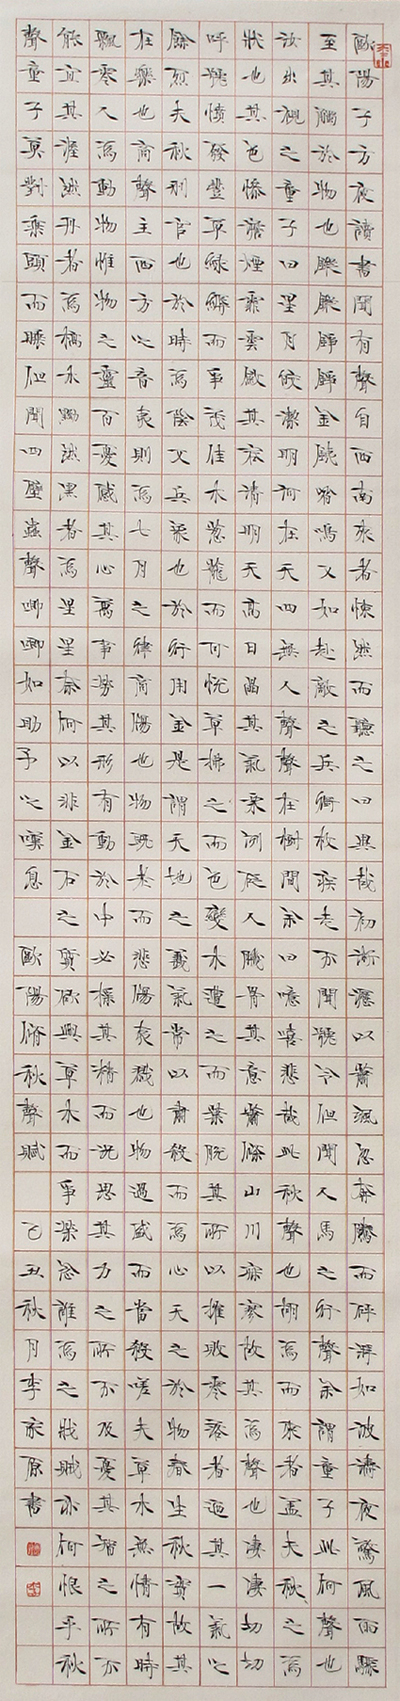 歐陽子方夜讀書聞有聲自西南來者悚然而聽之曰異哉初淅瀝以蕭颯忽奔騰而砰湃如波濤夜驚風雨驟
至其觸於物也鏦鏦錚錚金鐵皆鳴又如赴敵之兵銜枚疾走不聞號令但聞人馬之行聲余謂童子此何聲也
汝出視之童子曰星月皎潔明河在天四無人聲聲在樹間余曰噫嘻悲哉此秋聲也胡為而來者盍夫秋之為
狀也其色慘澹煙霏雲斂其容清明天高日晶其氣栗冽砭人肌骨其意蕭條山川寂寥故其為聲也淒淒切切
呼號憤發豐草綠縟而爭茂佳木蔥蘢而可悅草拂之而色變木遭之而葉脫其所以摧敗零落者迺其一氣之
餘烈夫秋刑官也於時為陰又兵象也於行用金是謂天地之義氣常以肅殺而為心天之於物春生秋實故其
在樂也商聲主西方之音夷則為七月之律商傷也物既老而悲傷夷戮也物過盛而當殺嗟夫草木無情有時
飄零人為動物惟物之靈百憂感其心萬事勞其形有動於中必搖其精而況思其力之所不及憂其智之所不
能宜其渥然丹者為槁木黟然黑者為星星奈何以非金石之質欲與草木而爭榮念誰為之戕賊亦何恨乎秋
聲童子莫對垂頭而睡但聞四壁蟲聲唧唧如助予之嘆息 歐陽脩秋聲賦 己丑秋月李家原書